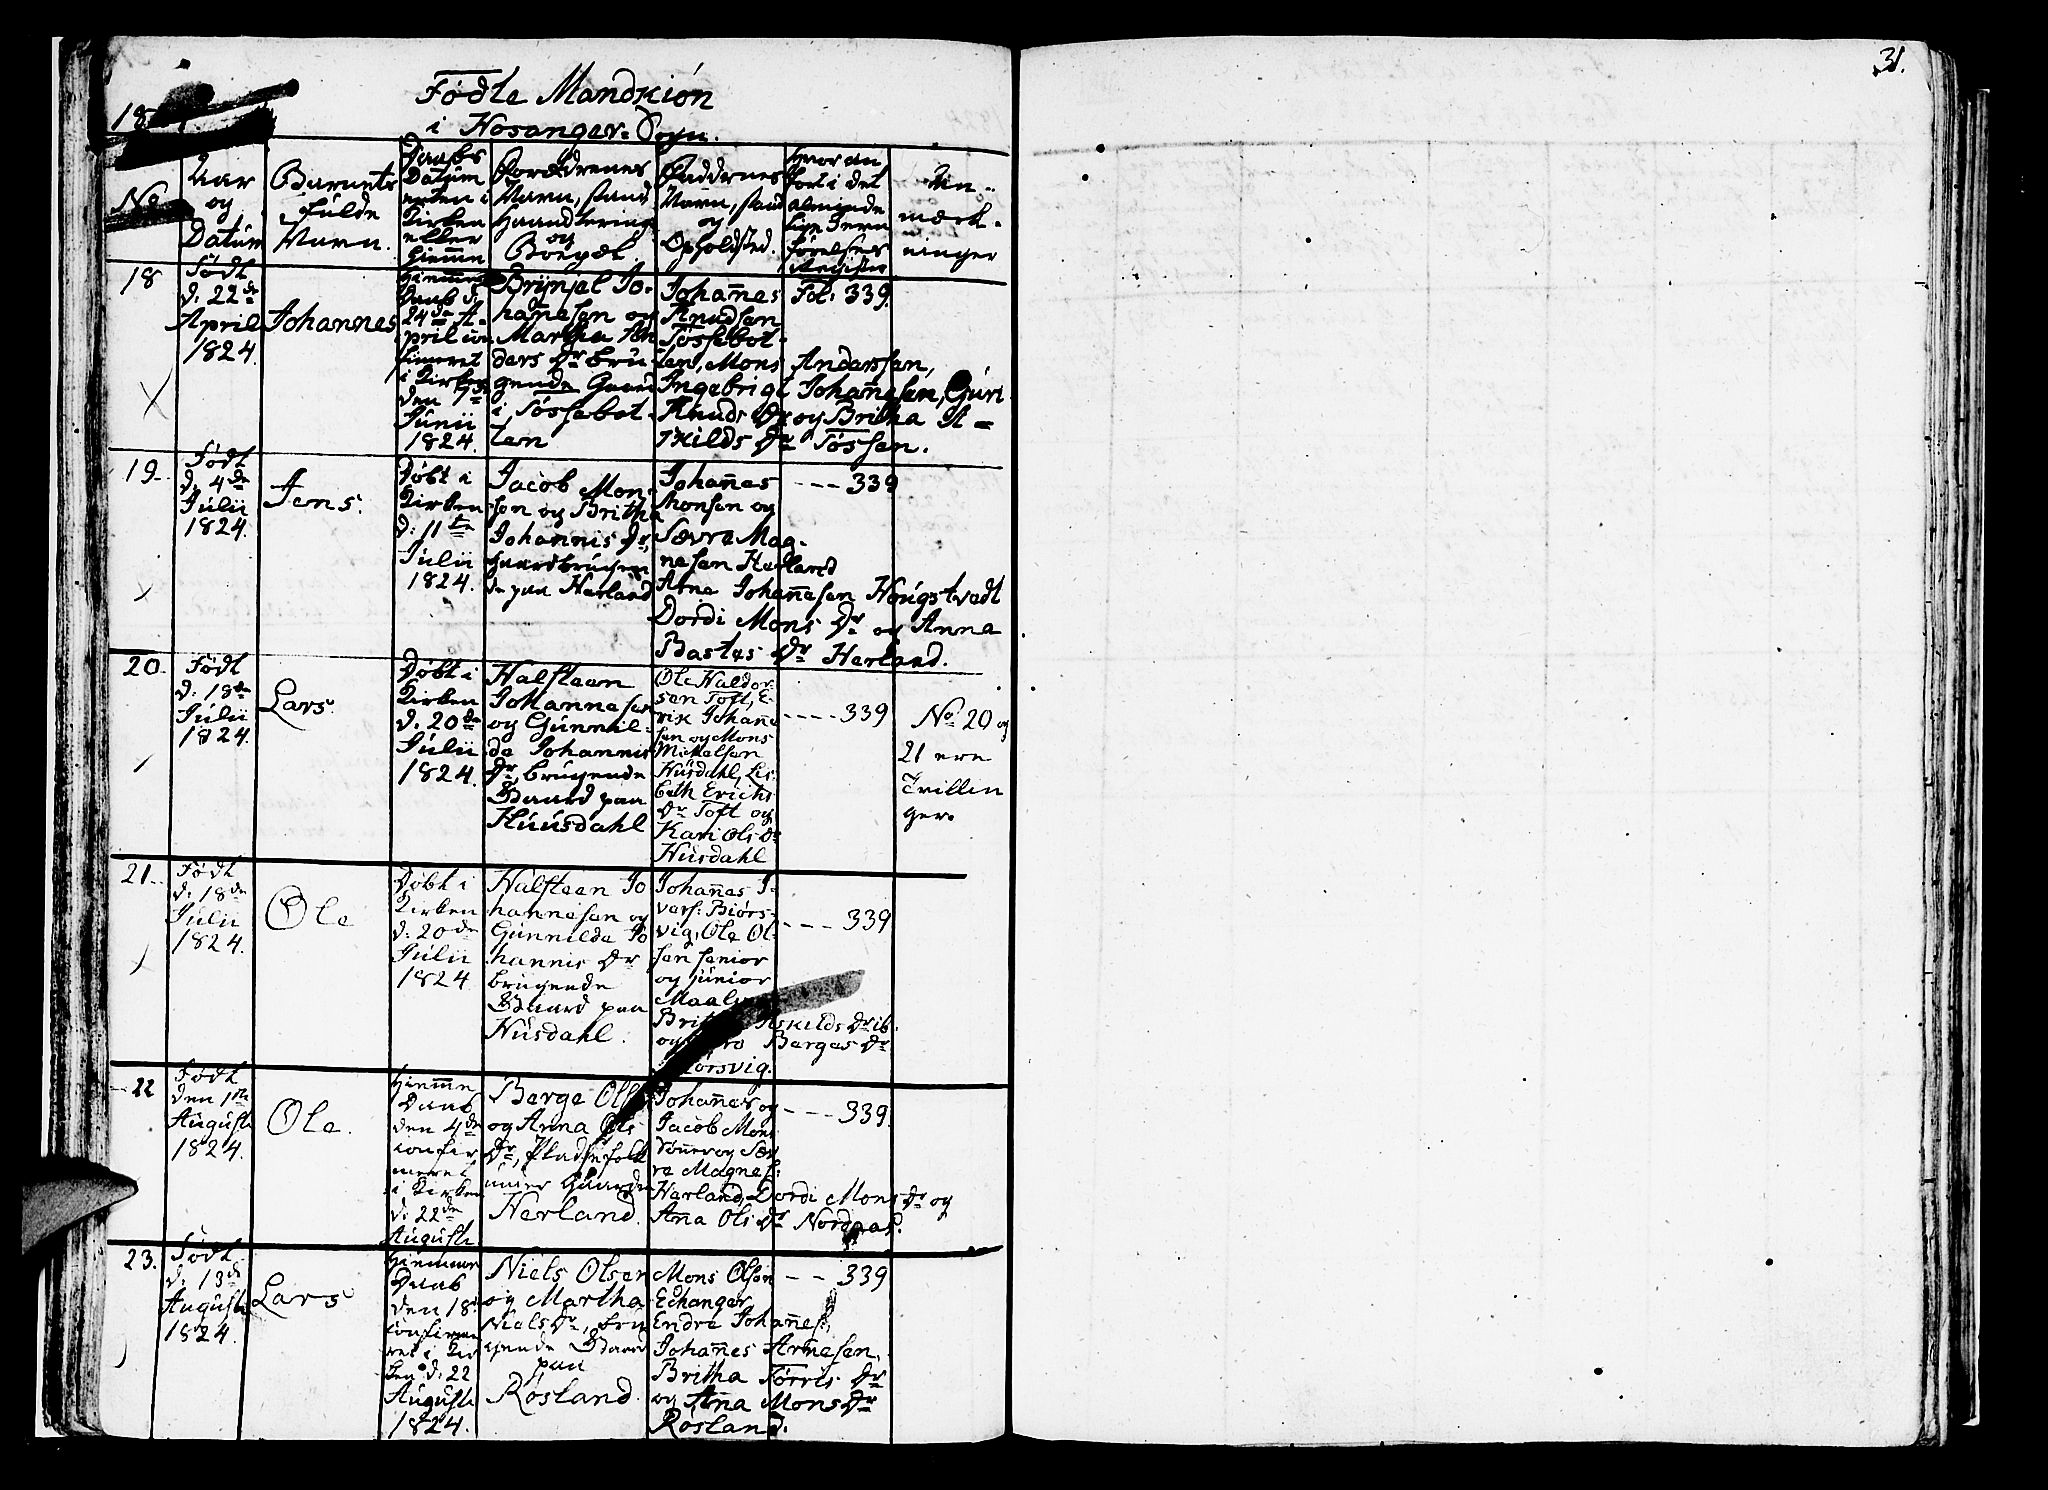 31.
18
Fødte Mandkiøn
i Hosanger Sogn.
No
Aar
og
Datum
Barnets
fulde
Navn.
Daabs
Datum
enten i
Kirken
eller
Hiemme
Forældrenes
Navn, stand
Haandtering
og
Boepæl.
Faddernes
Navn, stand
og
Opholdsted.
Hvor an
ført i det
alminde
lige Jevn
førelses
Register
An-
mærk-
ninger
18
Født
d. 22de
April
1824.
Johannes
Hiemme
Daab d.
24de A-
pril con
firmeret
i Kirken
den 7de
Junii
1824.
Brynjel Jo-
hannesen og
Martha An
ders Dr bru
gende Gaard
i Tøssebot-
ten
Johannes
Knudsen
Tøssebot-
ten, Mons Anderssen,
Ingebrigt Johannesen, Guri
Knuds Dr og Britha A=
skilds Dr Tøssen.
Fol: 339.
19.
Født
d. 4de
Julii
1824.
Jens.
Døbt i
Kirken
d. 11te
Julii
1824.
Jacob Mon-
sen og Britha
Johannis Dr,
gaardbrugen
de paa Herland
Johannes
Monsen og
Sævre Mag-
nesen Herland
Arne Johannesen Hougstvedt
Dordi Mons Dr og Anna
Bastes Dr Herland.
--- 339
20.
Født
d. 18de
Julii
1824.
Lars.
Døbt i
Kirken
d. 20de
Julii
1824.
Halsteen
Johannesen
og Gunnil-
de Johannis
Dr, brugende
Gaard paa
Huusdahl
Ole Haldor-
sen Toft, E-
rik Johanne
sen og Mons
Mikkelsen
Husdahl, Lis-
beth Erichs
Dr Toft og
Kari Ols Dr
Husdahl
---- 339
No 20 og
21 ere
Tvillin
ger.
21.
Født
d. 18de
Julii
1824.
Ole
Døbt i
Kirken
d. 20de
Julii
1824
Halsteen Jo
hannesen og
Gunnilde Jo
hannis Dr
brugende
Gaard paa
Husdahl.
Johannes I-
vers: Biørs-
vig, Ole Ol-
sen senior
og junior
Askilds Dr ib.
og Berges Dr
--- 339
22
Født
den 1ste
Augusti
1824.
Ole.
Hiemme
Daab
den 4de
confir
meret
i Kirken
d. 22de
Augusti
Berge Ols
og Anna Ols
Dr, Pladsefolk
under Gaarden
Herland.
Johannes og
Jacob Mons
Sønner og Sæv
re Magnes:
Herland, Dordi Mons Dr og
Anna Ols Dr Nordaas.
--- 339.
23.
Født
d. 13de
Augusti
1824.
Lars
Hiemme
Daab
den 18
confirme
ret i Kir
ken d. 22
Augusti
1824.
Niels Olsen
og Martha
Niels Dr, bru
gende Gaard
paa
Røsland.
Mons Olsen
Echanger
Endre Johannes:,
Johannes Arnesen,
Britha Torris Dr
og Anna Mons Dr
Røsland.
-- 339